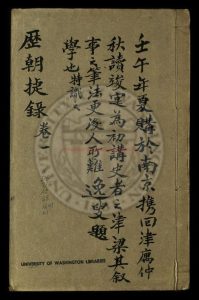 壬午年夏購於南京攜回津寓仲
秋讀竣實為初講史者之津梁其敘
事之筆法更後人所難 逸叟題
學也特識之
歷朝捷錄 卷一
UNIVERSITY OF WASHINGTON LIBRARIES